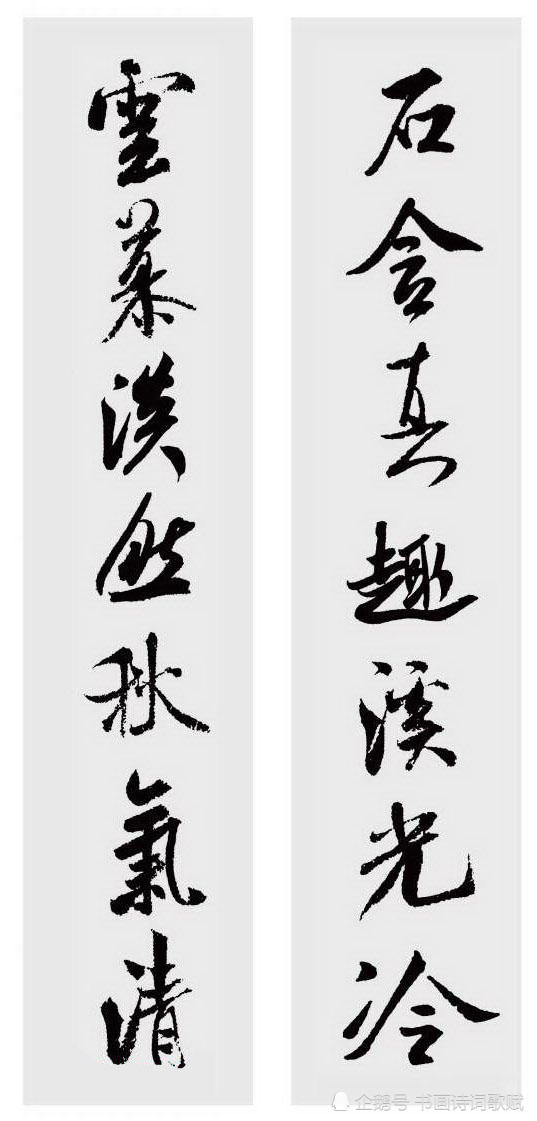 石含真趣溪光冷
雲慕淡然秋氣清
企鹅号 书画诗词歌赋